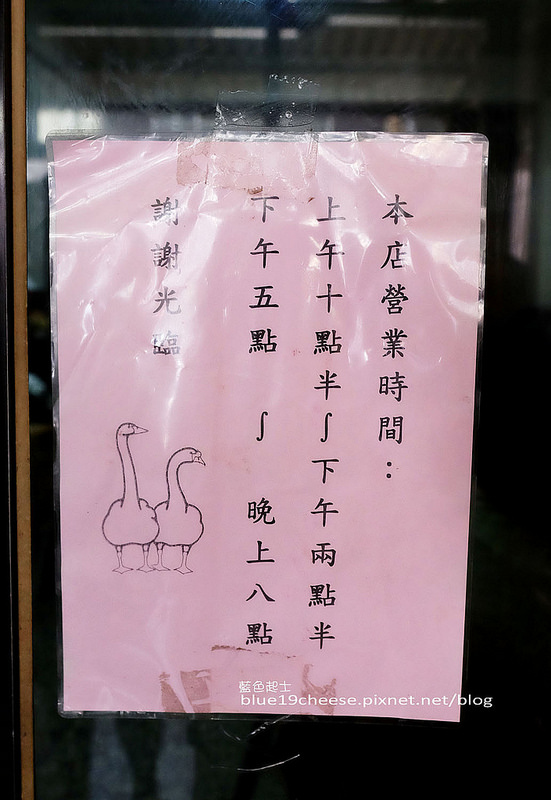 本店營業時間：
上午十點半∫下午兩點半
下午五點 ∫ 晚上八點
謝謝光臨
藍色起士
blue19cheese.pixnet.net/blog